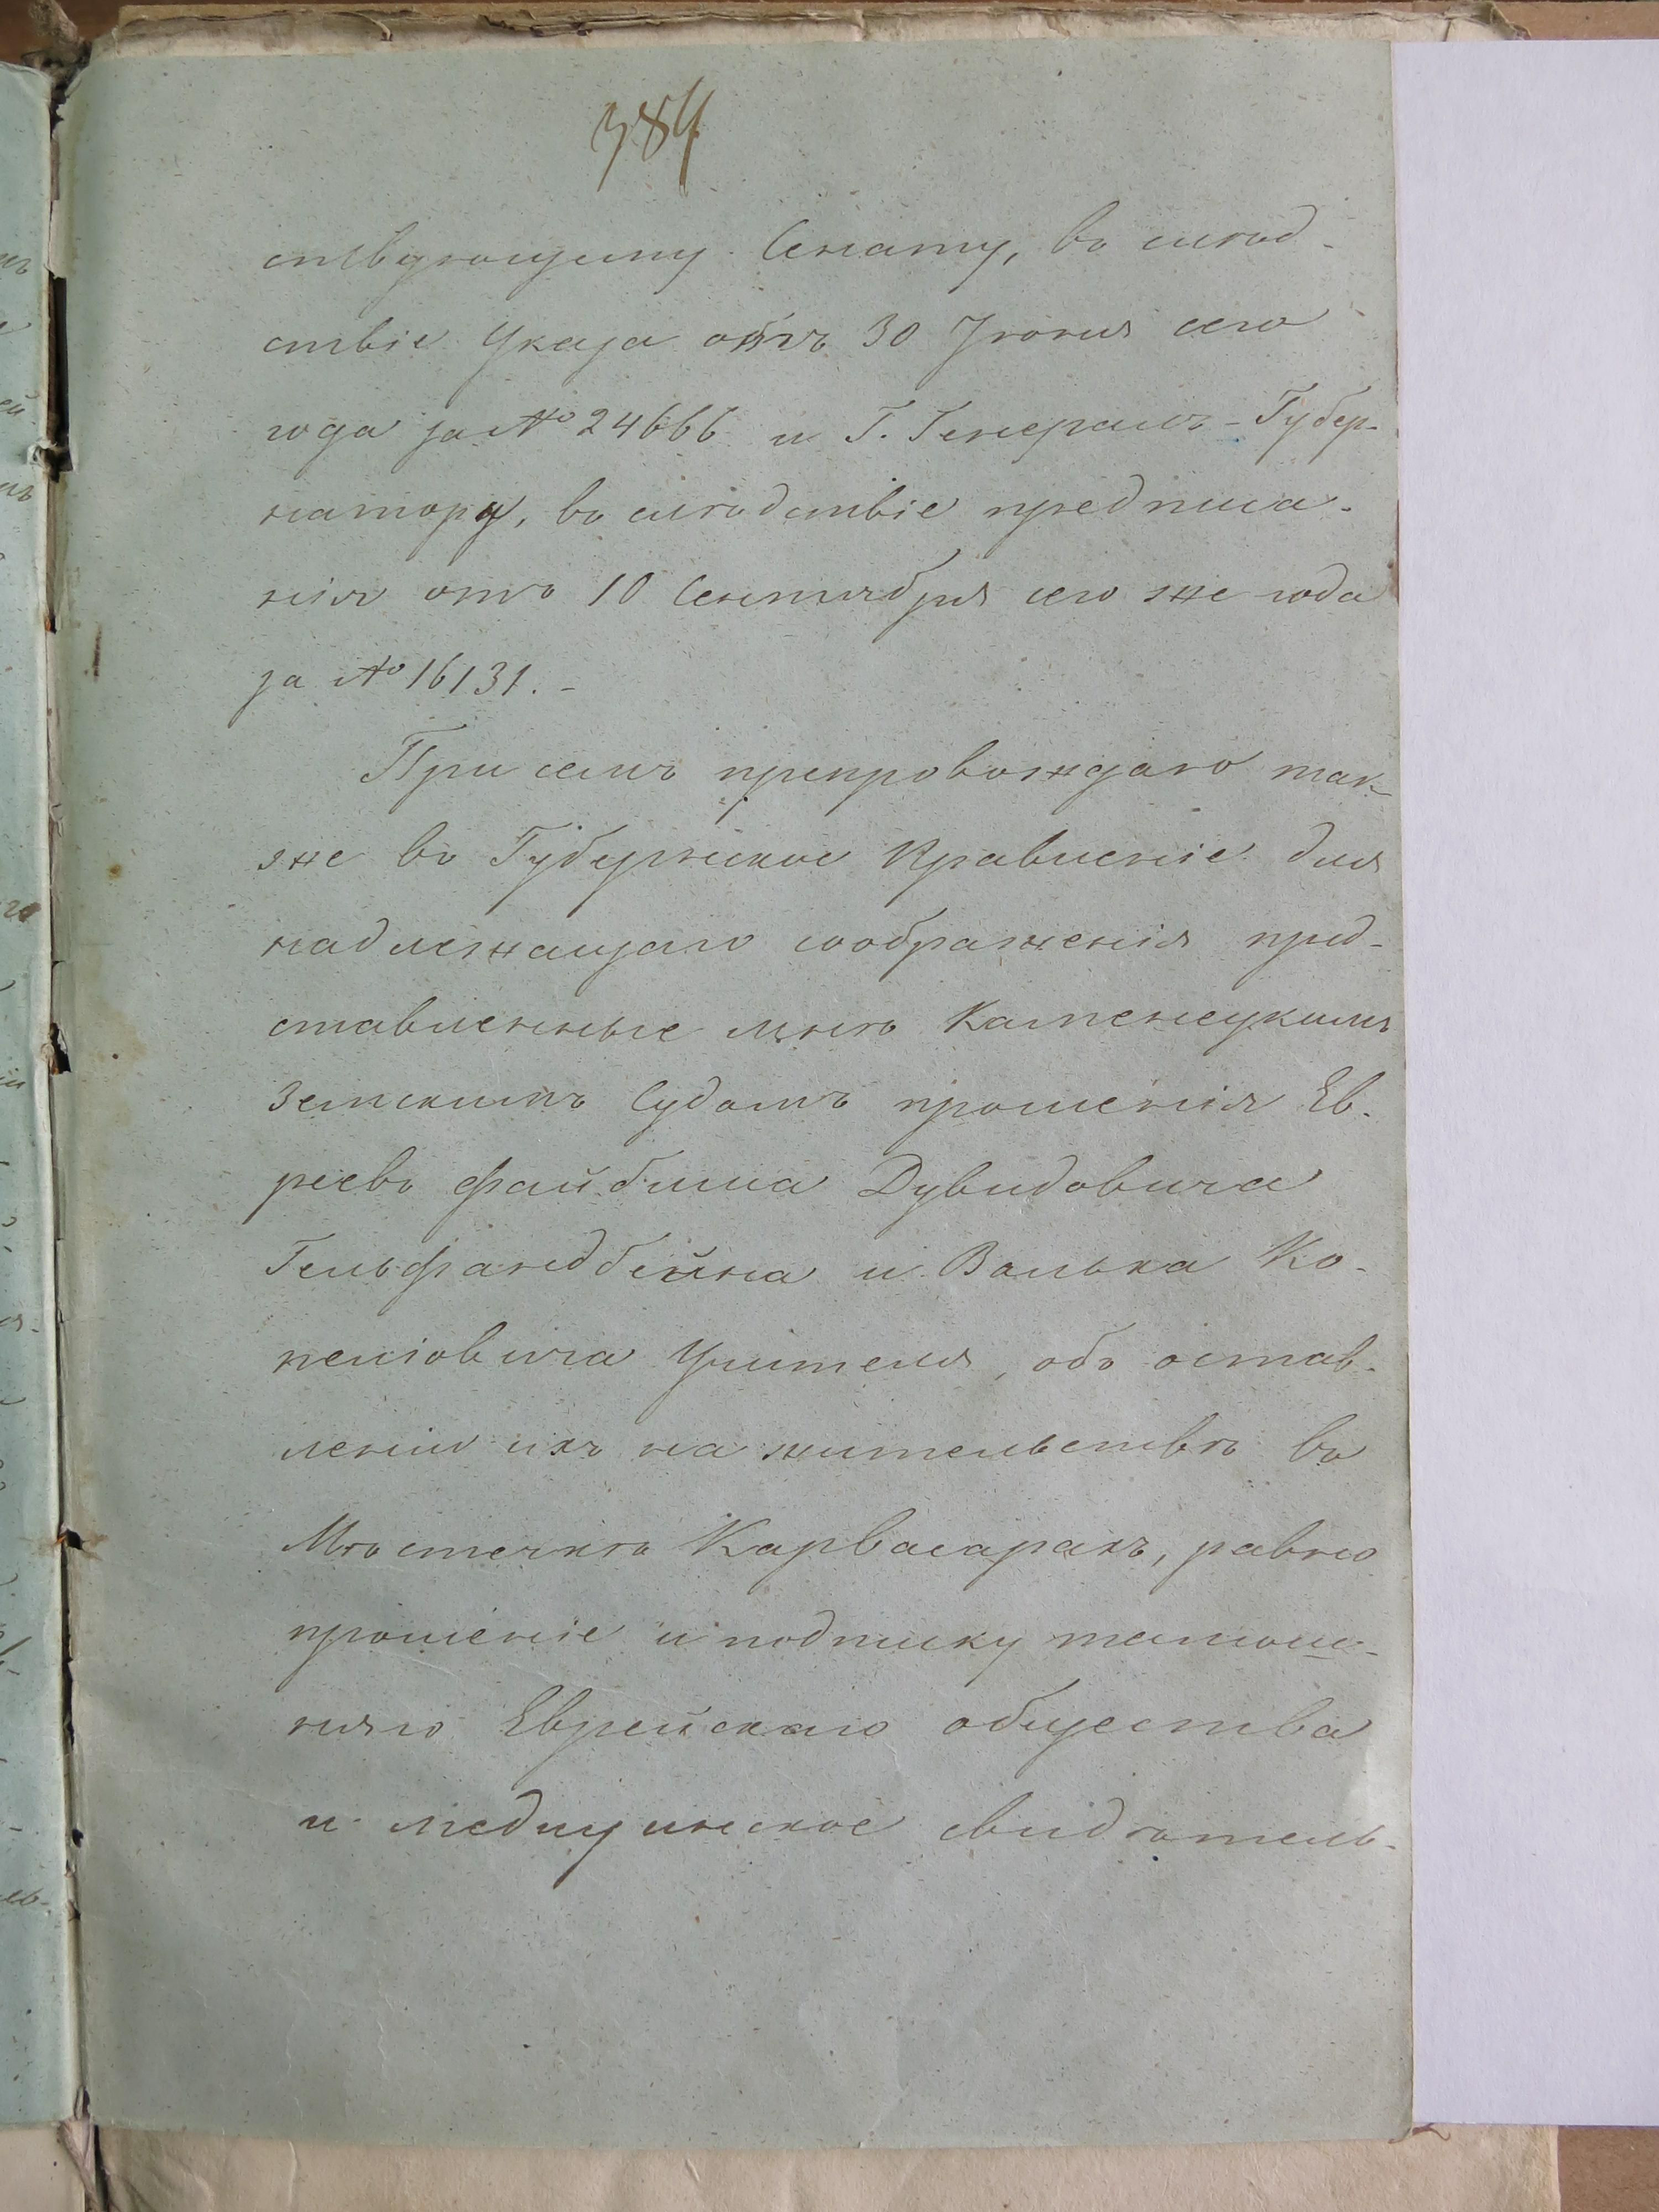 384
ствующему Сенату, въ слѣд-
ствіе Указа отъ 30 Іюня сего
года за № 24666 и Г. Генералъ-Губер-
натору, въ слѣдствіе предписа-
нія отъ 10 Сентября сего же года
за № 16131.-
При семъ препровождаю так-
же въ Губернское Правленіе для
надлежащаго соображенія пред-
ставленные мнѣ Каменецкимъ
Земскимъ Судомъ прошенія Ев-
реевъ Файбиша Дувидовича
Гельфандбейна и Волька Ко-
пелевича Учителя, объ остав-
леніи ихъ на жительствѣ въ
Мѣстечкѣ Карвасарахъ, равно
прошеніе и подписку тамош-
няго Еврейскаго общества
и медицинское свидѣтель-